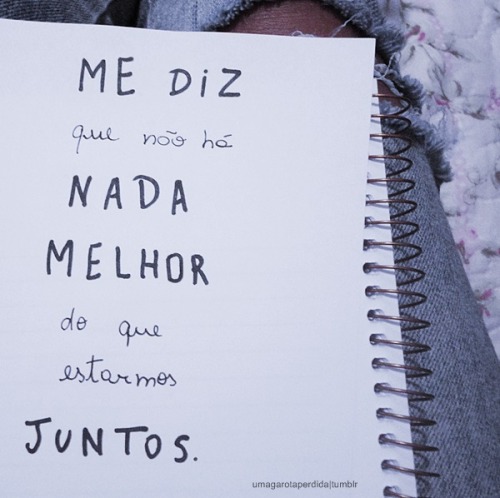 ME DIZ
que não há
NADA
MELHOR
do que
estarmos
JUNTOS.
umagarotaperdida|tumblr